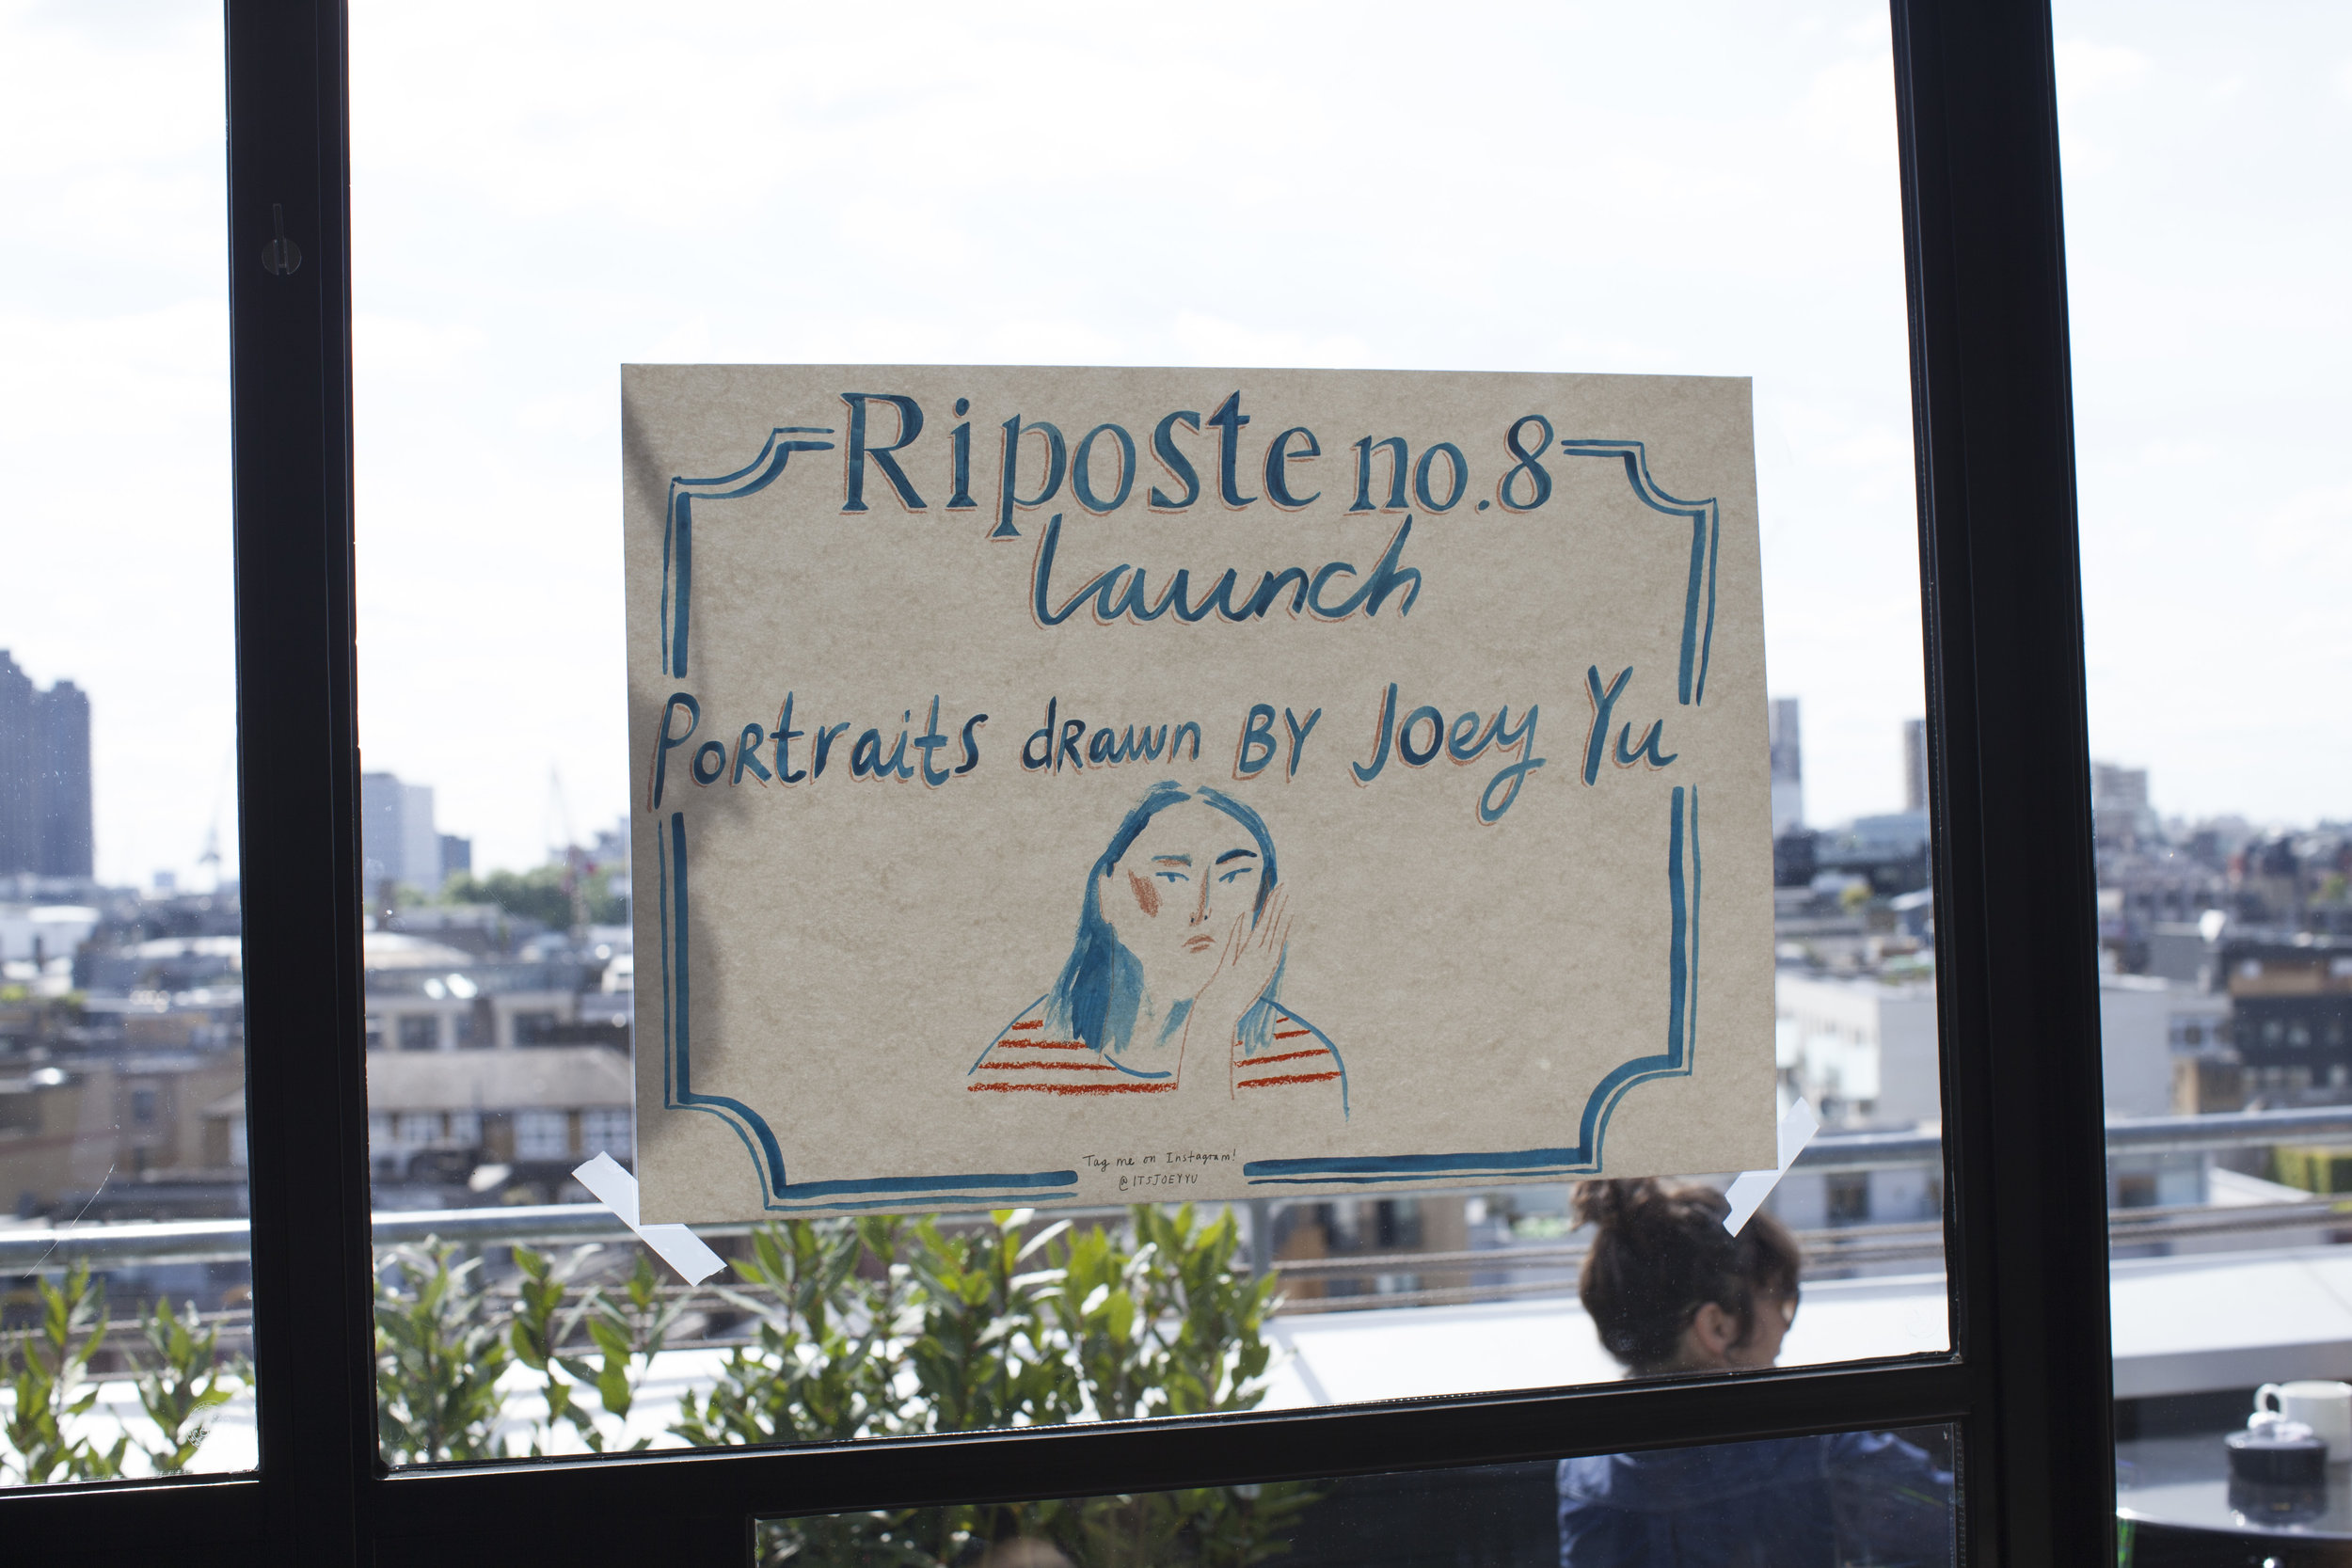 Riposte no.8
Launch
Portraits drawn BY Joey Yu
Tag me on Instagram!
@ITSJOEYYU